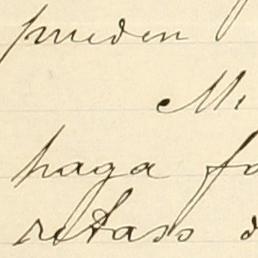 pueden
Mi
haga fo
retass d